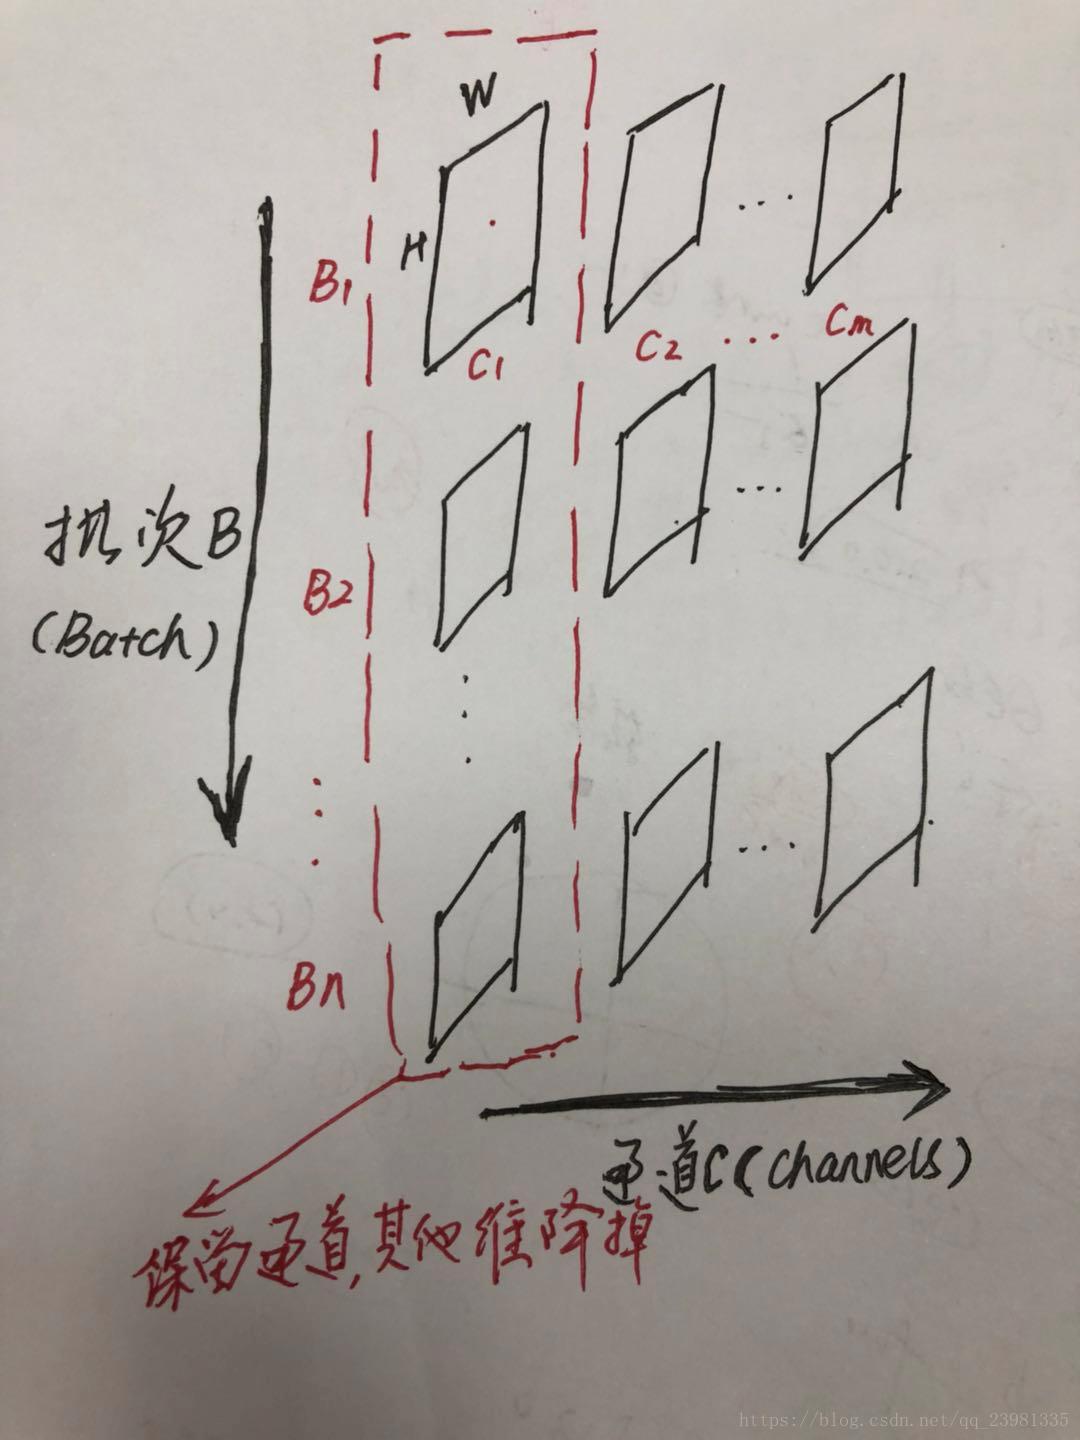 W
H
B1
C1
C2 ...
Cm
...
批次B
(Batch)
B2
...
Bn
通道C(Channels)
保留通道,其他维降掉
https://blog.csdn.net/qq_23981335